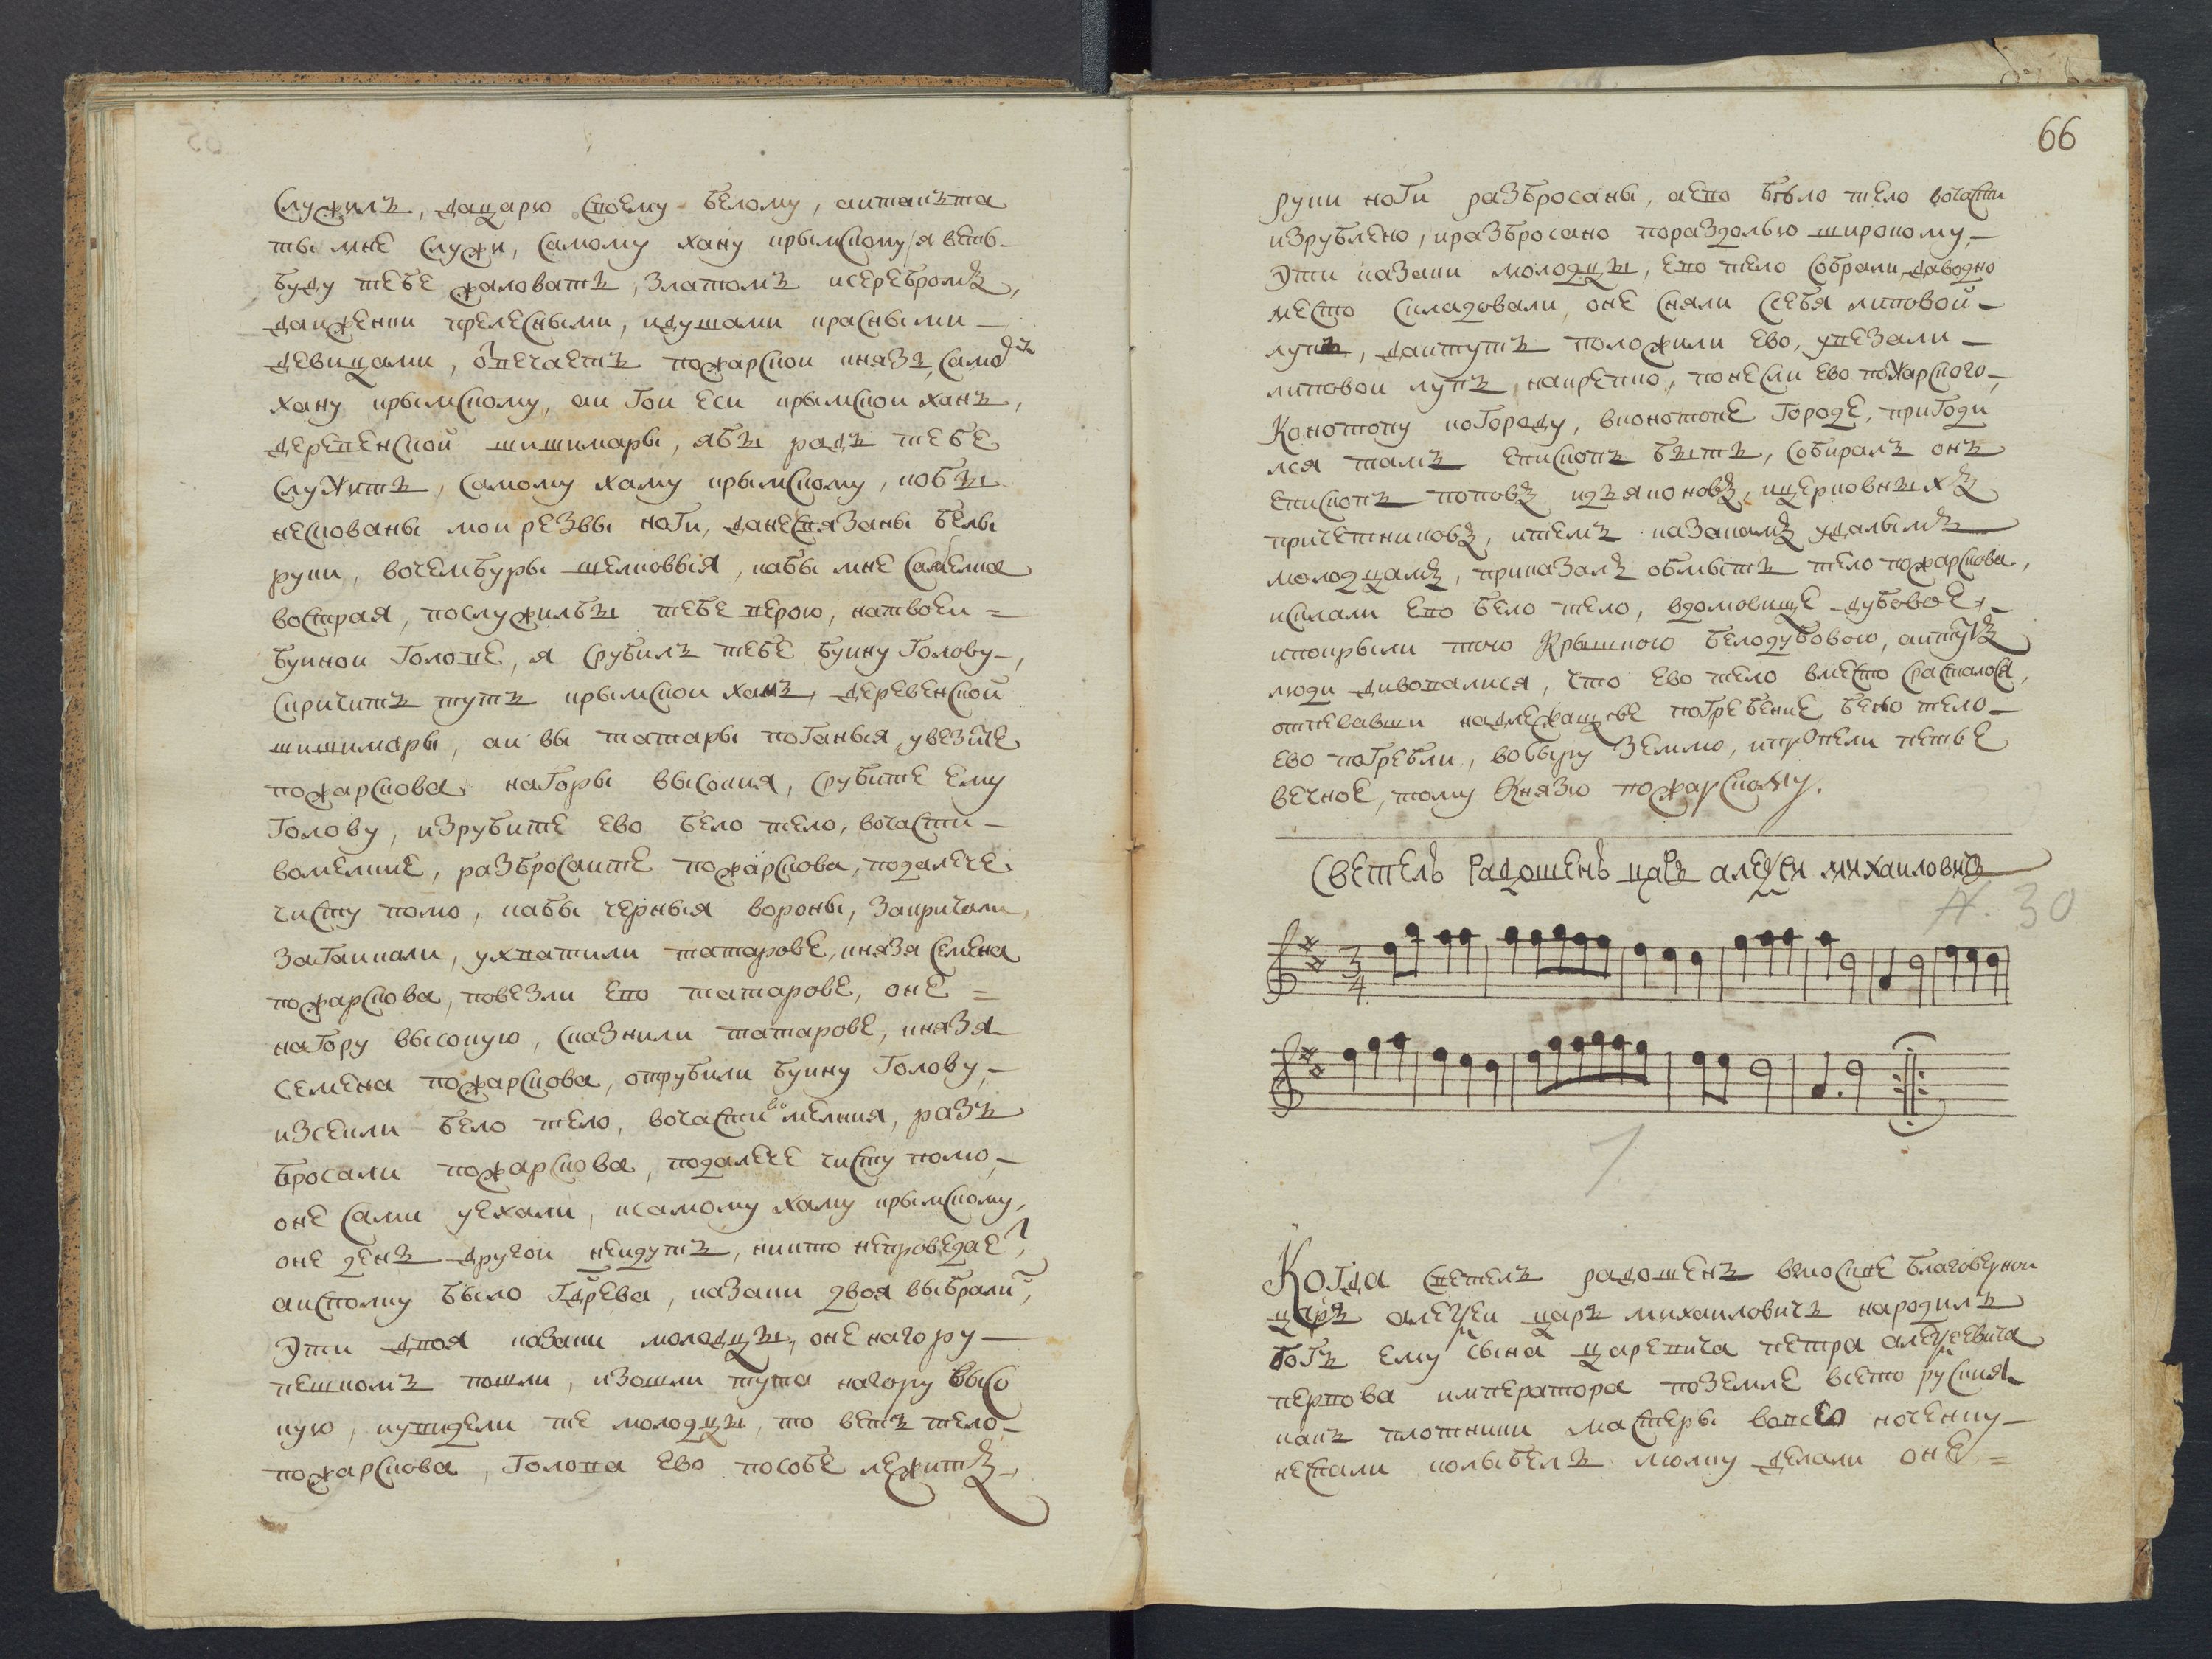 служилъ, дацарю своему белому, аитакъта
ты мне служи, самому хану крымскому, я веть
буду тебе жаловать, златомъ исеребромъ,
даиженки прелесными, идушами красными
девицами, отвечаетъ пожарскои князь, самому
хану крымскому, аи гои еси крымскои ханъ,
деревенской шишимары, ябы радъ тебе
служить, самому хану крымскому, кобы
нескованы мои резвы ноги, даневязаны белы
руки, вочембуры шелковыя, кабы мне сабелка
вострая, послужилбы тебе верою, натвоеи
буинои голове, я срубилъ тебе буину голову,
скричитъ тутъ крымскои ханъ, деревенской
шишимары, аи вы татары поганыя увезите
пожарскова нагоры высокия, срубите ему
голову, изрубите ево бело тело, вочасти
вомелкие, разбросаите пожарскова, подалече
чисту полю, кабы черныя вороны, закричали,
загаикали, ухватили татарове, князя семена
пожарскова, повезли ево татарове, оне
нагору высокую, сказнили татарове, князя
семена пожарскова, отрубили буину голову,
изсекли бело тело, вочасти во мелкия, разъ
бросали пожарскова, подалече чисту полю,
оне сами уехали, ксамому хану крымскому,
оне день другои неидутъ, никто непроведает,
аисполку было гдрева, казаки двоя выбрали,
эти двоя казаки молодцы, оне нагору
пешкомъ пошли, изошли тута нагору высо
кую, иувидели те молодцы, то веть тело
пожарскова, голова ево пособе лежитъ,
66
руки ноги разбросаны, аево было тело вочасти
изрублено, иразбросано пораздолью широкому,
эти казаки молодцы, ево тело собрали, даводно
место складовали, оне сняли ссебя липовой
лубъ, даитутъ положили ево, увезали
липовои лубъ накрепко, понесли ево пожарского,
Конотопу когороду, вконотопе городе, пригоди
лся тамъ епископъ быть, собиралъ онъ
епископъ поповъ идъяконовъ, ицерковныхъ
причетниковъ, итемъ казакамъ удалымъ
молодцамъ, приказалъ обмыть тело пожарскова,
исклали ево бело тело, вдомовище дубовое,
ипокрыли тою Крышкою белодубовою, аитутъ
люди дивовалися, что ево тело вместо срасталося,
отпевавши надлежащее погребение бело тело
ево погребли, восыру землю, ипропели петье
вечное, тому Князю пожарскому.
Светелъ Радошенъ царь алексеи михаиловичь
N. 30
3
4
7
Когда светелъ радошенъ вмоскве благоверной
царь алексеи царь михаиловичь народилъ
богъ ему сына царевича петра алексеевича
первова императора поземле всето руския
какъ плотники мастеры вовсю ноченку
неспали колыбель люлку делали оне